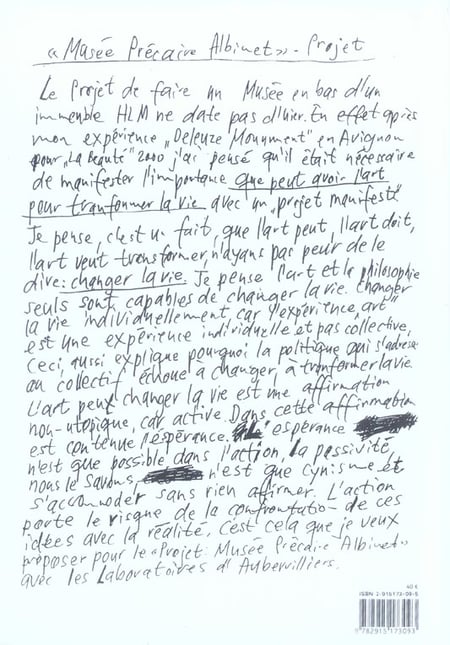 « Musée Précaire Albinet » - Projet
Le Projet de faire un Musée en bas d'un
immeuble HLM ne date pas d'hier. En effet après
mon expérience „Deleuze Monument" en Avignon
pour „La Beauté" 2000 j'ai pensé qu'il était nécessaire
de manifester l'importance que peut avoir l'art
pour tranformer la vie avec un „projet manifest".
Je pense, c'est un fait, que l'art peut, l'art doit,
l'art veut transformer, n'ayans pas peur de le
dire: changer la vie. Je pense l'art et la philosophie
seuls sont capables de changer la vie. Changer
la vie individuellement, car l'expérience „art"
est une expérience individuelle et pas collective,
Ceci, aussi explique pourquoi la politique qui s'adresse
au collectif, échoue à changer, à tronformer la vie.
L'art peut changer la vie est une affirmation
non-utopique, car active. Dans cette affirmation
est contenue l'espérance. L'espérance
n'est que possible dans l'action, la passivité,
nous le savons, n'est que cynisme et
s'accomoder sans rien affirmer. L'action
porte le risque de la confrontation de ces
idées avec la réalité, c'est cela que je veux
proposer pour le «Projet: Musée Précaire Albinet»
avec les Laboratoires d'Aubervilliers.
40 €
ISBN 2-915173-09-5
9 782915 173093